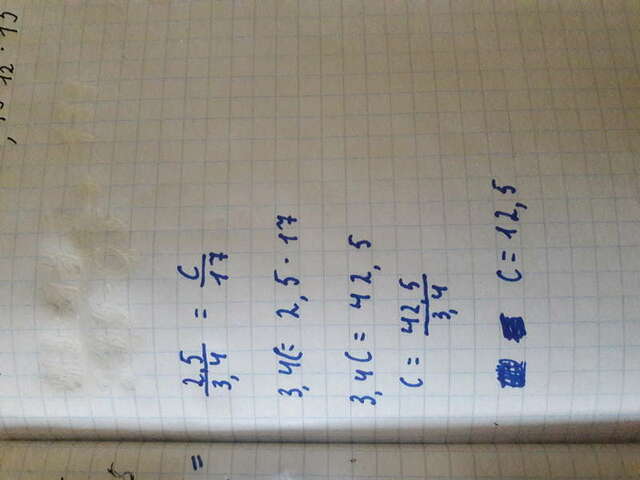 2,5/3,4 = C/17
3,4C = 2,5 · 17
3,4C = 42,5
C = 42,5/3,4
C = 12,5
12 · 13
=